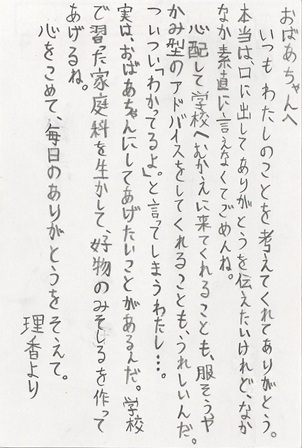 おばあちゃんへ
いつもわたしのことを考えてくれてありがとう。
本当は、口に出してありがとうを伝えたいけれど、なか
なか素直に言えなくてごめんね。
心配して学校へむかえに来てくれることも、服そうや
かみ型のアドバイスをしてくれることも、うれしいんだ。
ついつい「わかってるよ。」と言ってしまうわたし…。
実は、おばあちゃんにしてあげたいことがあるんだ。学校
で習った家庭科を生かして、好物のみそしるを作って
あげるね。
心をこめて、毎日のありがとうをそえて。
理香より